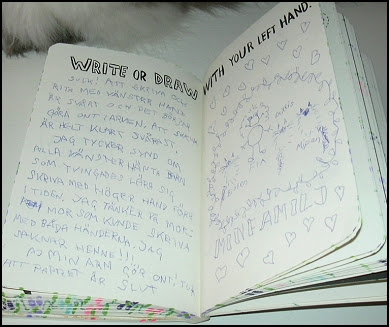 WRITE OR DRAW
SUCK! ATT SKRIVA OCH
RITA MED VÄNSTER HAND
ÄR SVÅRT OCH DET BÖRJAR
GÖRA ONT I ARMEN. ATT SKRIVA
ÄR HELT KLART SVÅRAST.
JAG TYCKER SYND OM
ALLA VÄNSTERHÄNTA BARN
SOM TVINGADES LÄRA SIG
SKRIVA MED HÖGER HAND FÖRR
I TIDEN. JAG TÄNKER PÅ MORS
MOR SOM KUNDE SKRIVA
MED BÅDA HÄNDERNA. JAG
SAKNAR HENNE!!!
AJ MIN ARM GÖR ONT! TUR
ATT PAPPRET ÄR SLUT
WITH YOUR LEFT HAND.
MIN FAMILJ